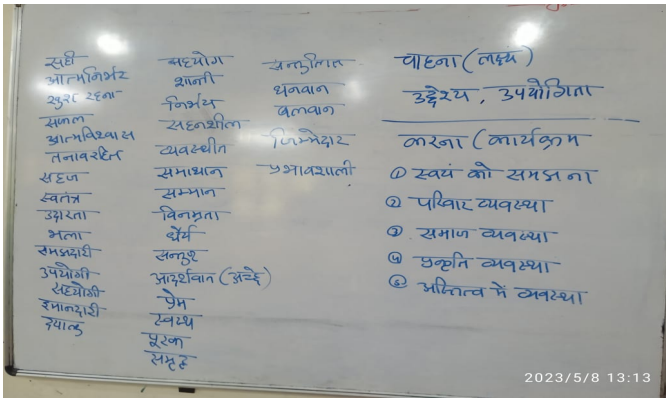 सही
आत्मनिर्भर
खुश रहना
सफल
आत्मविश्वास
तनावरहित
सहज
स्वतंत्र
उदारता
भला
समझदारी
उपयोगी
सहयोगी
इमानदारी
दयालु
सहयोग
शान्ती
निर्भय
सहनशील
व्यवस्थीत
समाधान
सम्मान
विनम्रता
धैर्य
सन्तुष्ट
आदर्शवान (अच्छे)
प्रेम
स्वस्थ
पूरक
समृद्ध
सन्तुलित
धनवान
बलवान
जिम्मेदार
प्रभावशाली
चाहना (लक्ष्य)
उद्देश्य, उपयोगिता
करना (कार्यक्रम
① स्वयं को समझना
② परिवार व्यवस्था
③ समाज व्यवस्था
④ प्रकृति व्यवस्था
⑤ अस्तित्व में व्यवस्था
2023/5/8 13:13